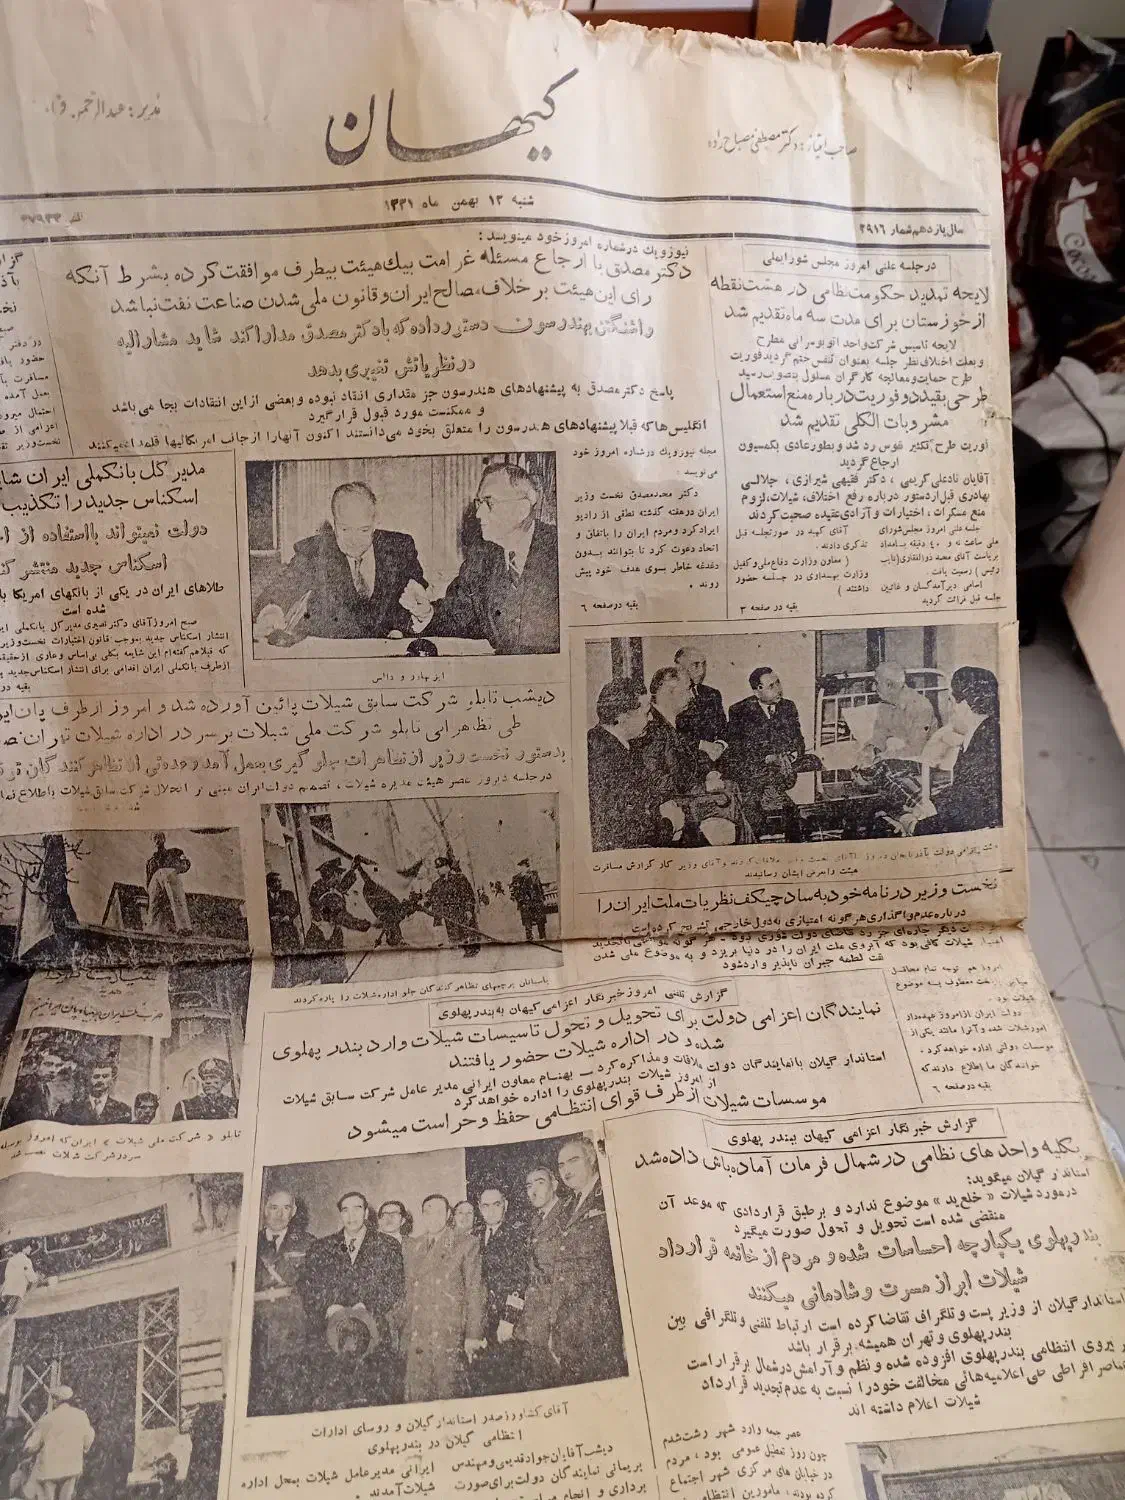 کیهان
صاحب امتیاز: دکتر مصطفی مصباح زاده
مدیر: عبدالرحمن
شنبه ۱۲ بهمن ماه ۱۳۳۱
سال یازدهم شماره ۲۹۱۶
در جلسه علنی امروز مجلس شورایملی
لایحه تمدید حکومت نظامی در هشت نقطه
از خوزستان برای مدت سه ماه تقدیم شد
لایحه تاسیس شرکت واحد اتوبوسرانی مطرح
و بعلت اختلاف نظر جلسه بعنوان تنفس ختم گردید فوریت
طرح حمایت و معالجه کارگران مسلول بتصویب رسید
طرحی بقید دو فوریت درباره منع استعمال
مشروبات الکلی تقدیم شد
فوریت طرح تکثیر نفوس رد شد و بطور عادی بکمیسیون
ارجاع گردید
آقایان نادعلی کریمی ، دکتر فقیهی شیرازی ، جلالی
بهادری قبل از دستور درباره رفع اختلاف، شیلات، لزوم
منع مسکرات ، اختیارات و آزادی عقیده صحبت کردند
جلسه علنی امروز مجلس شورای
ملی ساعت نه و ۴۰ دقیقه بامداد
بریاست آقای محمد ذوالفقاری (نایب
رئیس) رسمیت یافت .
اسامی دیرآمدگان و غائبین
جلسه قبل قرائت گردید
آقای کهبد در صورتجلسه قبل
تذکری دادند .
( معاون وزارت دفاع ملی و کفیل
وزارت بهداری در جلسه حضور
داشتند )
بقیه در صفحه ۳
نیوزویک در شماره امروز خود مینویسد :
دکتر مصدق با ارجاع مسئله غرامت بیک هیئت بیطرف موافقت کرده بشرط آنکه
رای این هیئت بر خلاف مصالح ایران و قانون ملی شدن صناعت نفت نباشد
واشنگتن بهندرسون دستور داده که با دکتر مصدق مدارا کند شاید مشارالیه
در نظریاتش تغییری بدهد
پاسخ دکتر مصدق به پیشنهادهای هندرسون جز مقداری انتقاد نبوده و بعضی از این انتقادات بجا می باشد
و ممکنست مورد قبول قرار گیرد
انگلیس ها که قبلا پیشنهادهای هندرسون را متعلق بخود می دانستند اکنون آنها را از جانب امریکائیها قلمداد میکنند
مجله نیوزویک در شماره امروز خود
می نویسد :
دکتر محمد مصدق نخست وزیر
ایران در هفته گذشته نطقی از رادیو
ایراد کرد و مردم ایران را باتفاق و
اتحاد دعوت کرد تا بتوانند بدون
دغدغه خاطر بسوی هدف خود پیش
روند .
بقیه در صفحه ۶
مدیر کل بانک ملی ایران
اسکناس جدید را تکذیب
دولت نمیتواند با استفاده از
اسکناس جدید منتشر
طلاهای ایران در یکی از بانکهای امریکا
شده است
صبح امروز آقای دکتر نصیری مدیر کل بانک ملی
انتشار اسکناس جدید بموجب قانون اختیارات نخست وزیر
که قبلا هم گفته ام این شایعه بکلی بی اساس و عاری از حقیقت
از طرف بانک ملی ایران اقدامی برای انتشار اسکناس جدید
بقیه در
ایزنهاور و دالس
دیشب تابلو شرکت سابق شیلات پائین آورده شد و امروز از طرف پان
طی تظاهراتی تابلو شرکت ملی شیلات بر سر در اداره شیلات تهران
بدستور نخست وزیر از تظاهرات جلوگیری بعمل آمد و عده ئی از تظاهر کنندگان
در جلسه دیروز عصر هیئت مدیره شیلات ، تصمیم دولت ایران مبنی بر انحلال شرکت سابق شیلات باطلاع
پاسبانان پرچمهای تظاهر کنندگان جلو اداره شیلات را پاره کردند
هیئت را بعرض ایشان رسانیدند
نخست وزیر در نامه خود به سادچیکف نظریات ملت ایران را
درباره عدم واگذاری هر گونه امتیازی به دول خارجی تشریح کرده است
امتیاز شیلات کافی بود که آبروی ملت ایران را در دنیا بریزد و به موضوع ملی شدن
نفت لطمه جبران ناپذیر وارد شود
امروز هم توجه تمام محافل
معطوف به موضوع
شیلات بود .
دولت ایران از امروز عهده دار
امور شیلات شده و آنرا مانند یکی از
موسسات دولتی اداره خواهد کرد .
خوانندگان ما اطلاع دارند که
بقیه در صفحه ۶
گزارش تلفنی امروز خبرنگار اعزامی کیهان به بندر پهلوی
نمایندگان اعزامی دولت برای تحویل و تحول تاسیسات شیلات وارد بندر پهلوی
شده و در اداره شیلات حضور یافتند
استاندار گیلان با نمایندگان دولت ملاقات و مذاکره کرد – بهنام معاون ایرانی مدیر عامل شرکت سابق شیلات
از امروز شیلات بندر پهلوی را اداره خواهد کرد
موسسات شیلات از طرف قوای انتظامی حفظ و حراست میشود
تابلو « شرکت ملی شیلات » ایران که امروز بوسیله
سر در شرکت شیلات نصب شد
گزارش خبرنگار اعزامی کیهان ببندر پهلوی
بکلیه واحدهای نظامی در شمال فرمان آماده باش داده شد
استاندار گیلان میگوید:
در مورد شیلات « خلع ید » موضوع ندارد و بر طبق قراردادی که موعد آن
منقضی شده است تحویل و تحول صورت میگیرد
بندر پهلوی یکپارچه احساسات شده و مردم از خاتمه قرارداد
شیلات ابراز مسرت و شادمانی میکنند
استاندار گیلان از وزیر پست و تلگراف تقاضا کرده است ارتباط تلفنی و تلگرافی بین
بندر پهلوی و تهران همیشه برقرار باشد
نیروی انتظامی بندر پهلوی افزوده شده و نظم و آرامش در شمال برقرار است
عناصر افراطی طی اعلامیه هائی مخالفت خود را نسبت به عدم تجدید قرارداد
شیلات اعلام داشته اند
عصر جمعه وارد شهر رشت شدم
چون روز تعطیل عمومی بود ، مردم
در خیابان های مرکزی شهر اجتماع
کرده بودند ، مامورین انتظامی
آقای کشاورز صدر استاندار گیلان و روسای ادارات
انتظامی گیلان در بندر پهلوی
دیشب آقایان جواد قدیمی و مهندس
بریمانی نمایندگان دولت برای صورت
برداری و انجام
ایرانی مدیر عامل شیلات بمحل اداره
شیلات آمدند .